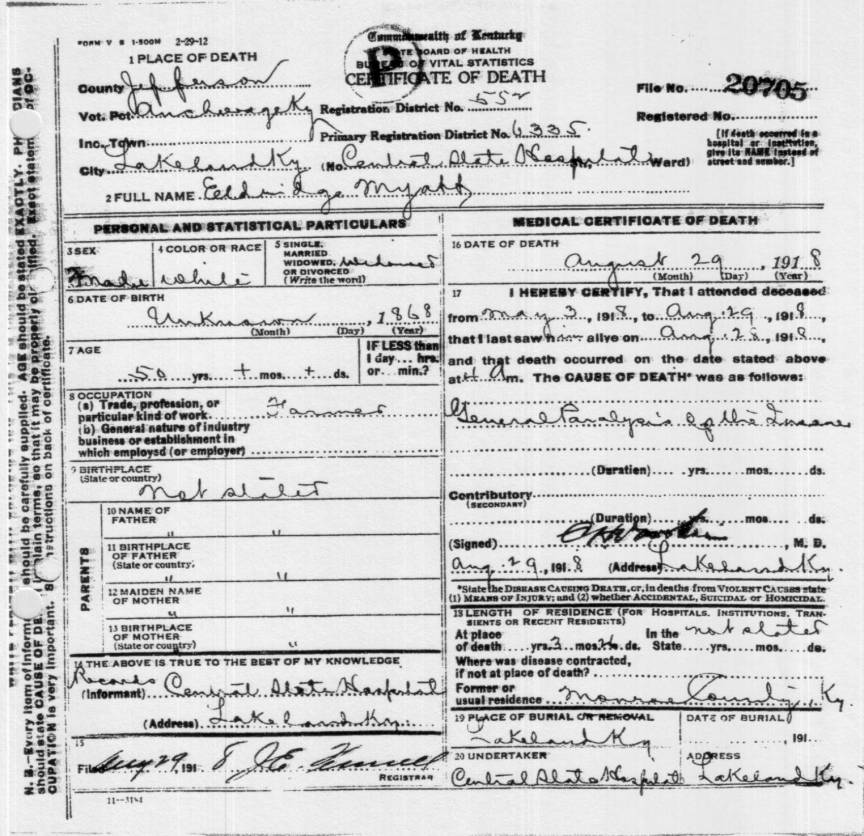 FORM V S 1-500M 2-29-12
Commonwealth of Kentucky
STATE BOARD OF HEALTH
BUREAU OF VITAL STATISTICS
CERTIFICATE OF DEATH
P
1 PLACE OF DEATH
County Jefferson
Vot. Pct. Anchorage Ky
Registration District No. 552
File No. 20705
Inc. Town
Primary Registration District No. 6335.
Registered No.
City Lakeland Ky (No. Central State Hospital St., Ward)
[If death occurred in a hospital or institution, give its NAME instead of street and number.]
2 FULL NAME Eldridge Myatt
PERSONAL AND STATISTICAL PARTICULARS
3 SEX
Male
4 COLOR OR RACE
White
5 SINGLE, MARRIED WIDOWED, OR DIVORCED (Write the word) Widowed
6 DATE OF BIRTH
Unknown, 1868
(Month) (Day) (Year)
7 AGE
50 yrs. + mos. + ds.
IF LESS than 1 day... hrs. or... min.?
8 OCCUPATION
(a) Trade, profession, or particular kind of work. Farmer
(b) General nature of industry business or establishment in which employed (or employer)
9 BIRTHPLACE
(State or country)
Not stated
PARENTS
10 NAME OF FATHER
" "
11 BIRTHPLACE OF FATHER
(State or country)
" "
12 MAIDEN NAME OF MOTHER
" "
13 BIRTHPLACE OF MOTHER
(State or country)
"
14 THE ABOVE IS TRUE TO THE BEST OF MY KNOWLEDGE
Records
(Informant) Central State Hospital
(Address) Lakeland Ky.
15
Filed Aug 29, 1918 J.E.
REGISTRAR
11--3184
MEDICAL CERTIFICATE OF DEATH
16 DATE OF DEATH
August 29, 1918
(Month) (Day) (Year)
17 I HEREBY CERTIFY, That I attended deceased
from May 3, 1918, to Aug. 29, 1918,
that I last saw him alive on Aug. 28, 1918,
and that death occurred on the date stated above
at 4 Am. The CAUSE OF DEATH* was as follows:
General Paralysis of the Insane
(Duration) yrs. mos. ds.
Contributory
(SECONDARY)
(Duration) yrs. mos. ds.
(Signed) , M. D.
Aug. 29, 1918 (Address) Lakeland Ky.
*State the DISEASE CAUSING DEATH, or, in deaths from VIOLENT CAUSES state
(1) MEANS OF INJURY; and (2) whether ACCIDENTAL, SUICIDAL or HOMICIDAL.
18 LENGTH OF RESIDENCE (FOR HOSPITALS, INSTITUTIONS, TRANSIENTS OR RECENT RESIDENTS)
At place of death yrs. 3 mos. 26 ds. In the State yrs. mos. ds. not stated
Where was disease contracted, if not at place of death?
Former or usual residence Monroe County, Ky.
19 PLACE OF BURIAL OR REMOVAL
Lakeland Ky
DATE OF BURIAL
, 191
20 UNDERTAKER
Central State Hospital
ADDRESS
Lakeland Ky.